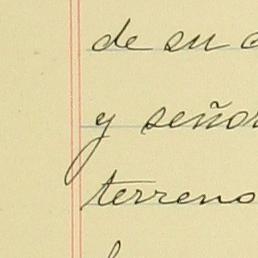 de su
y señor
terreno